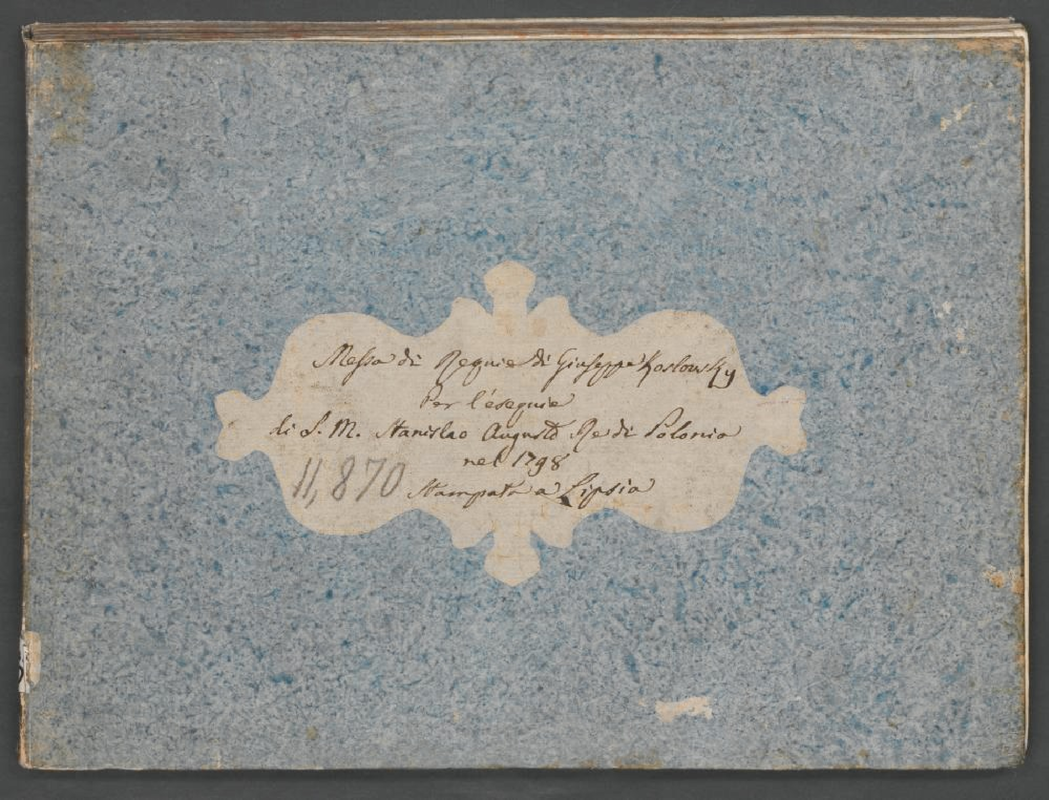 Messa di Requie di Giuseppe Koslowsky
Per l'esequie
di S. M. Stanislao Augusto Re di Polonia
nel 1798
11,870 Stampata a Lipsia